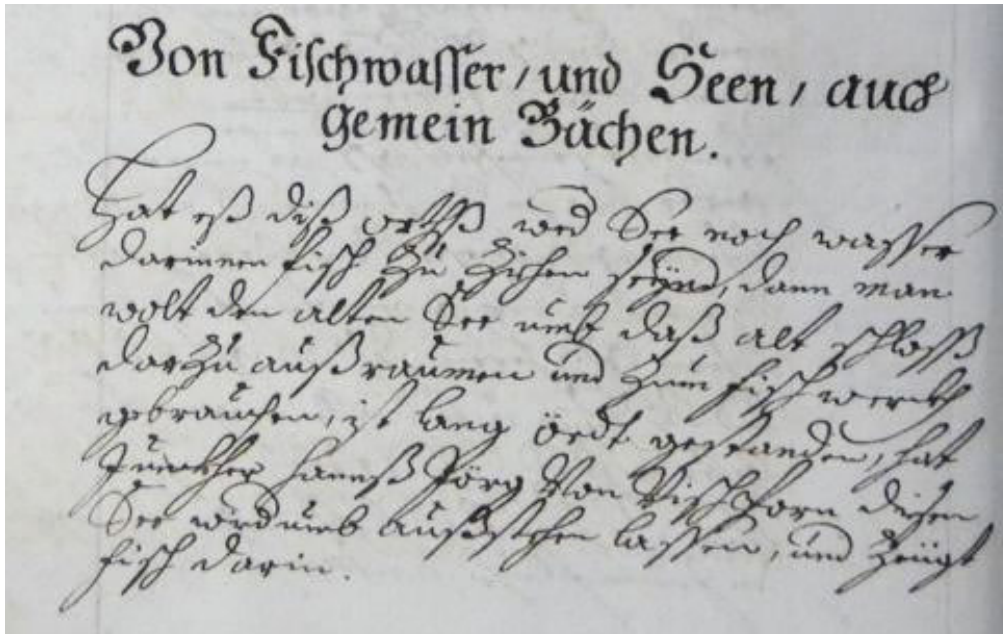 Von Fischwasser / und Seen / auch
gemein Bächen.
Hat eß diß orthß wed See noch wasser
darinnen fisch zu zichen seynd, dann man
wolt den alten See umb daß alt schloß
darzu außraumen und zum fischwerckh
gebrauchen, ist lang öedt gestanden, hat
Junckher Hannß Jörg von disen
See widerumb lassen, und zeügt
fisch darin.